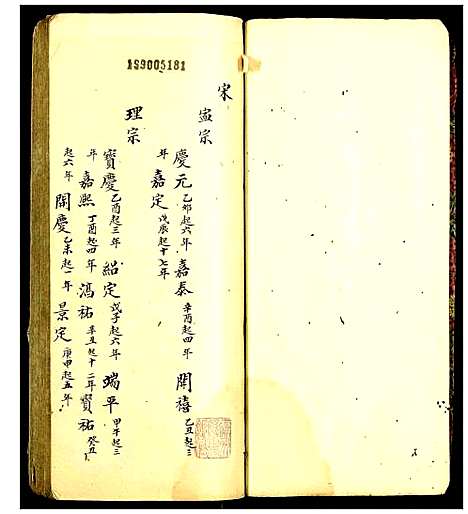 189005181
宋
寧宗
慶元 乙卯起六年 嘉泰 辛酉起四年 開禧 乙丑起三
年 嘉定 戊辰起十七年
理宗
寳慶 乙酉起三年 紹定 戊子起六年 端平 甲午起三
年 嘉熙 丁酉起四年 淳祐 辛丑起十二年 寳祐 癸丑
起六年 開慶 乙未起一年 景定 庚申起五年